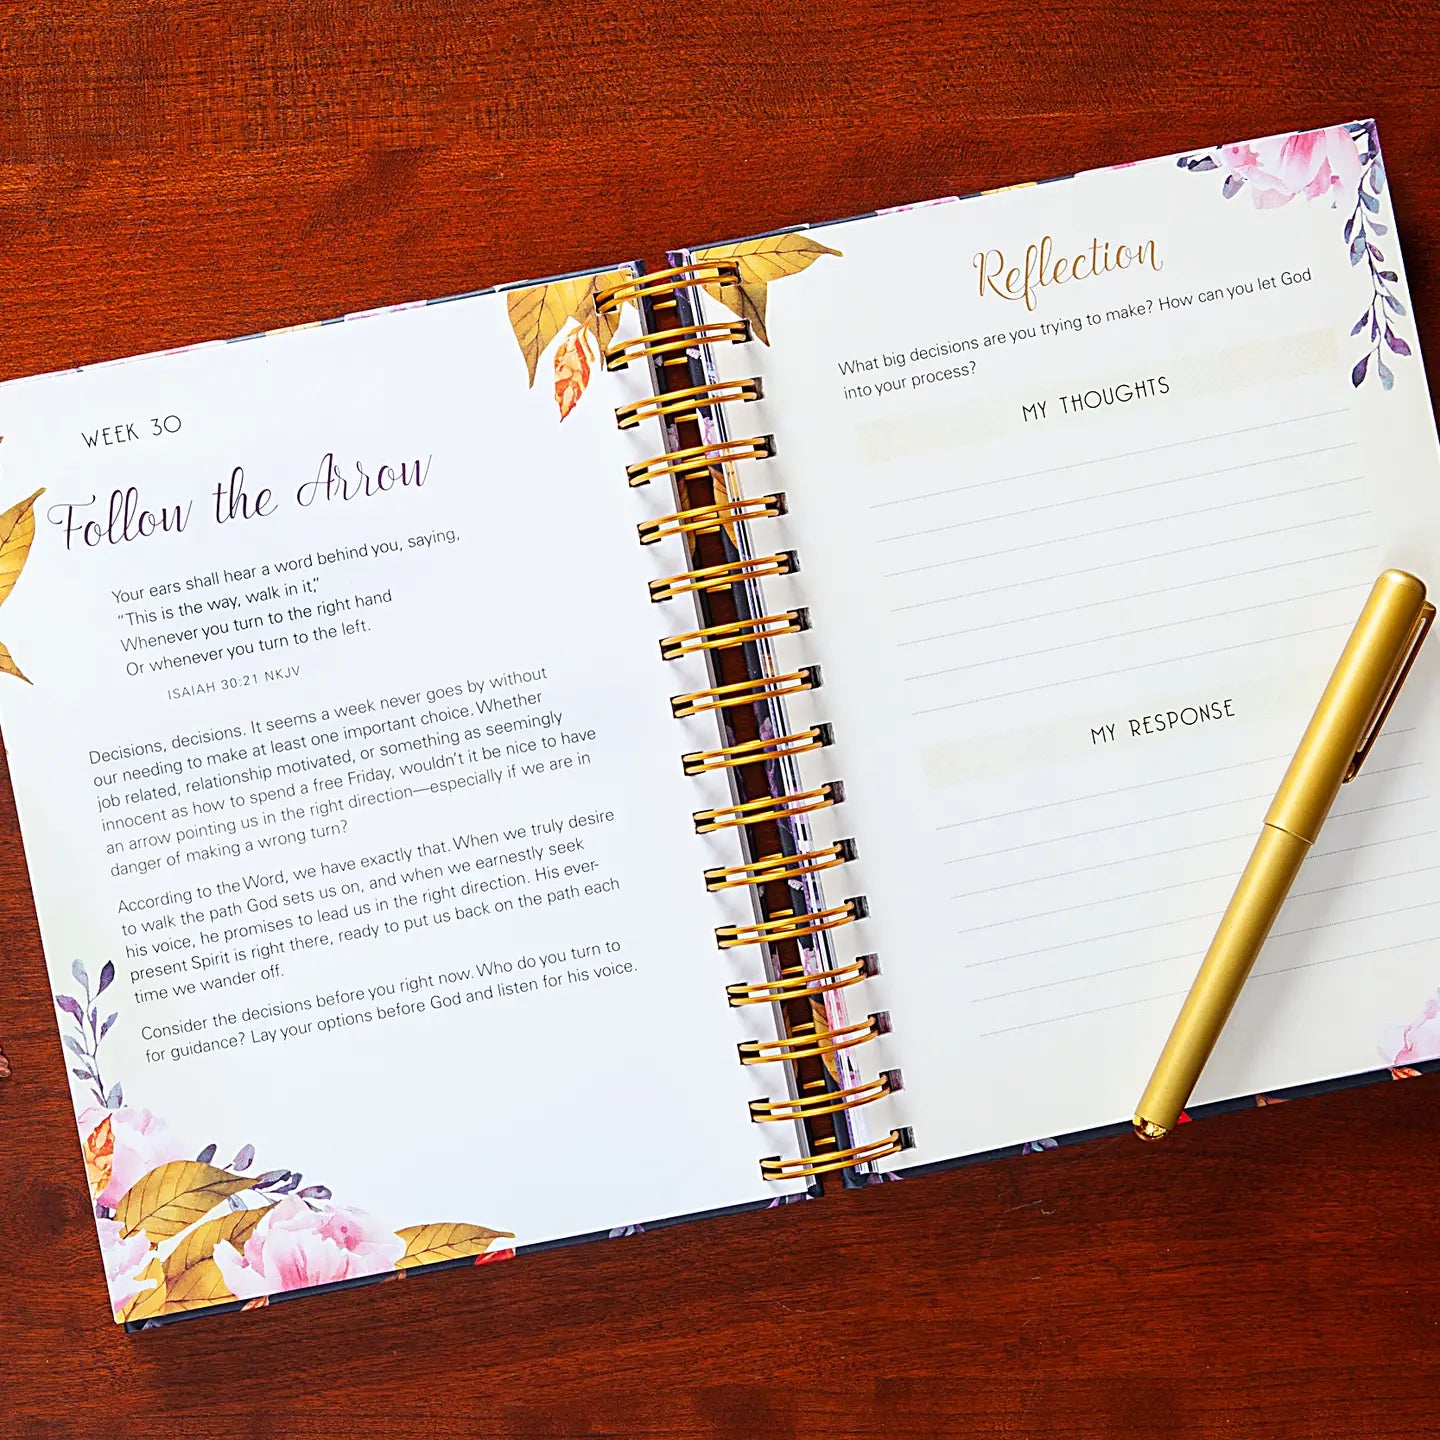 WEEK 30
Follow the Arrow
Your ears shall hear a word behind you, saying,
“This is the way, walk in it,”
Whenever you turn to the right hand
Or whenever you turn to the left.
ISAIAH 30:21 NKJV
Decisions, decisions. It seems a week never goes by without
our needing to make at least one important choice. Whether
job related, relationship motivated, or something as seemingly
innocent as how to spend a free Friday, wouldn’t it be nice to have
an arrow pointing us in the right direction—especially if we are in
danger of making a wrong turn?
According to the Word, we have exactly that. When we truly desire
to walk the path God sets us on, and when we earnestly seek
his voice, he promises to lead us in the right direction. His ever-
present Spirit is right there, ready to put us back on the path each
time we wander off.
Consider the decisions before you right now. Who do you turn to
for guidance? Lay your options before God and listen for his voice.
Reflection
What big decisions are you trying to make? How can you let God
into your process?
MY THOUGHTS
MY RESPONSE